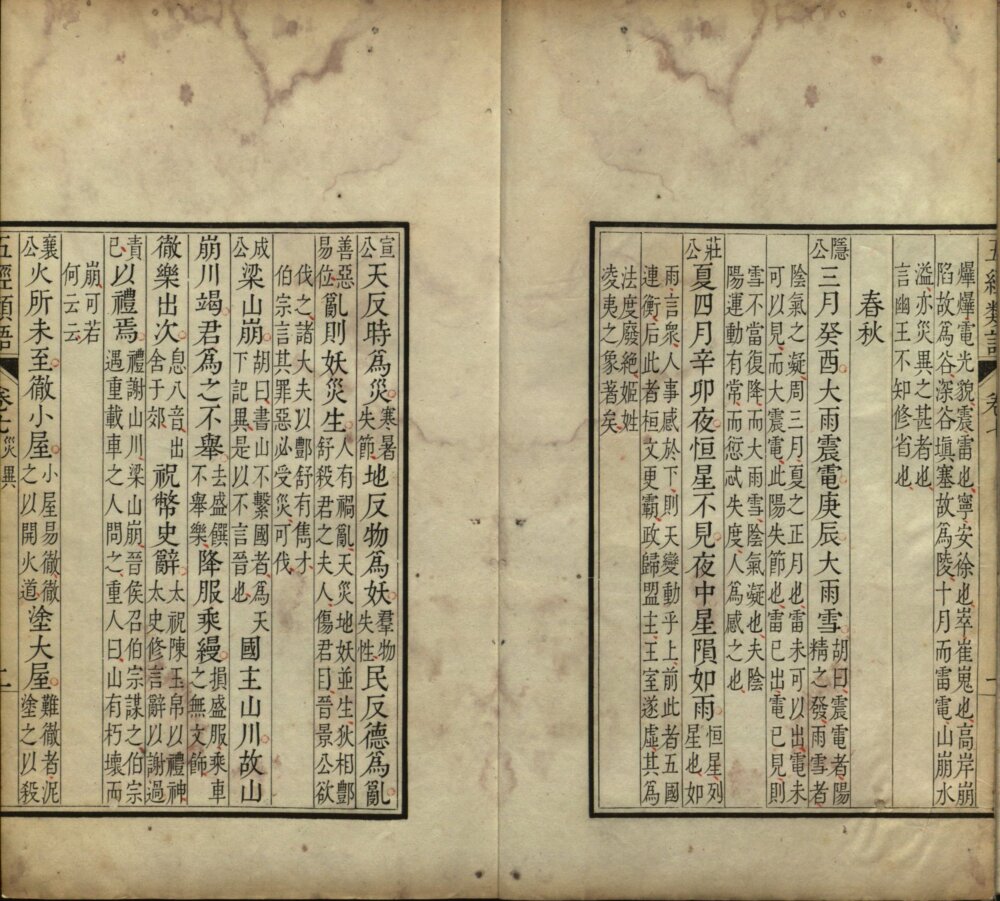 五經類語 卷七 一
爗爗電光貌震雷也寧安徐也崒崔嵬也高岸崩
陷故為谷深谷塡塞故為陵十月而雷電山崩水
溢亦災異之甚者也
言幽王不知修省也
春秋
隱公三月癸酉大雨震電庚辰大雨雪胡曰震電者陽精之發雨雪者
陰氣之凝周三月夏之正月也雷未可以出電未
可以見而大震電此陽失節也雷已出電已見則
雪不當復降而大雨雪陰氣凝也夫陰
陽運動有常而愆忒失度人為感之也
莊公夏四月辛卯夜恒星不見夜中星隕如雨恒星列星也如
雨言衆人事感於下則天變動乎上前此者五國
連衡后此者桓文更霸政歸盟主王室遂虛其為
法度廢絕姬姓
凌夷之象著矣
宣公天反時為災寒暑失節地反物為妖羣物失性民反德為亂
善惡易位亂則妖災生人有禍亂天災地妖並生狄相酆舒殺君之夫人傷君目晉景公欲
伐之諸大夫以酆舒有雋才
伯宗言其罪惡必受災可伐
成公梁山崩胡曰書山不繫國者為天下記異是以不言晉也國主山川故山
崩川竭君為之不舉去盛饌不舉樂降服乘縵損盛服乘車之無文飾
徹樂出次息八音出舍于郊祝幣史辭太祝陳玉帛以禮神太史修言辭以謝過
責己以禮焉禮謝山川梁山崩晉侯召伯宗謀之伯宗遇重載車之人問之重人曰山有朽壞而
崩可若
何云云
襄公火所未至徹小屋小屋易徹徹之以開火道塗大屋難徹者泥塗之以殺
五經類語 卷七 災異 二